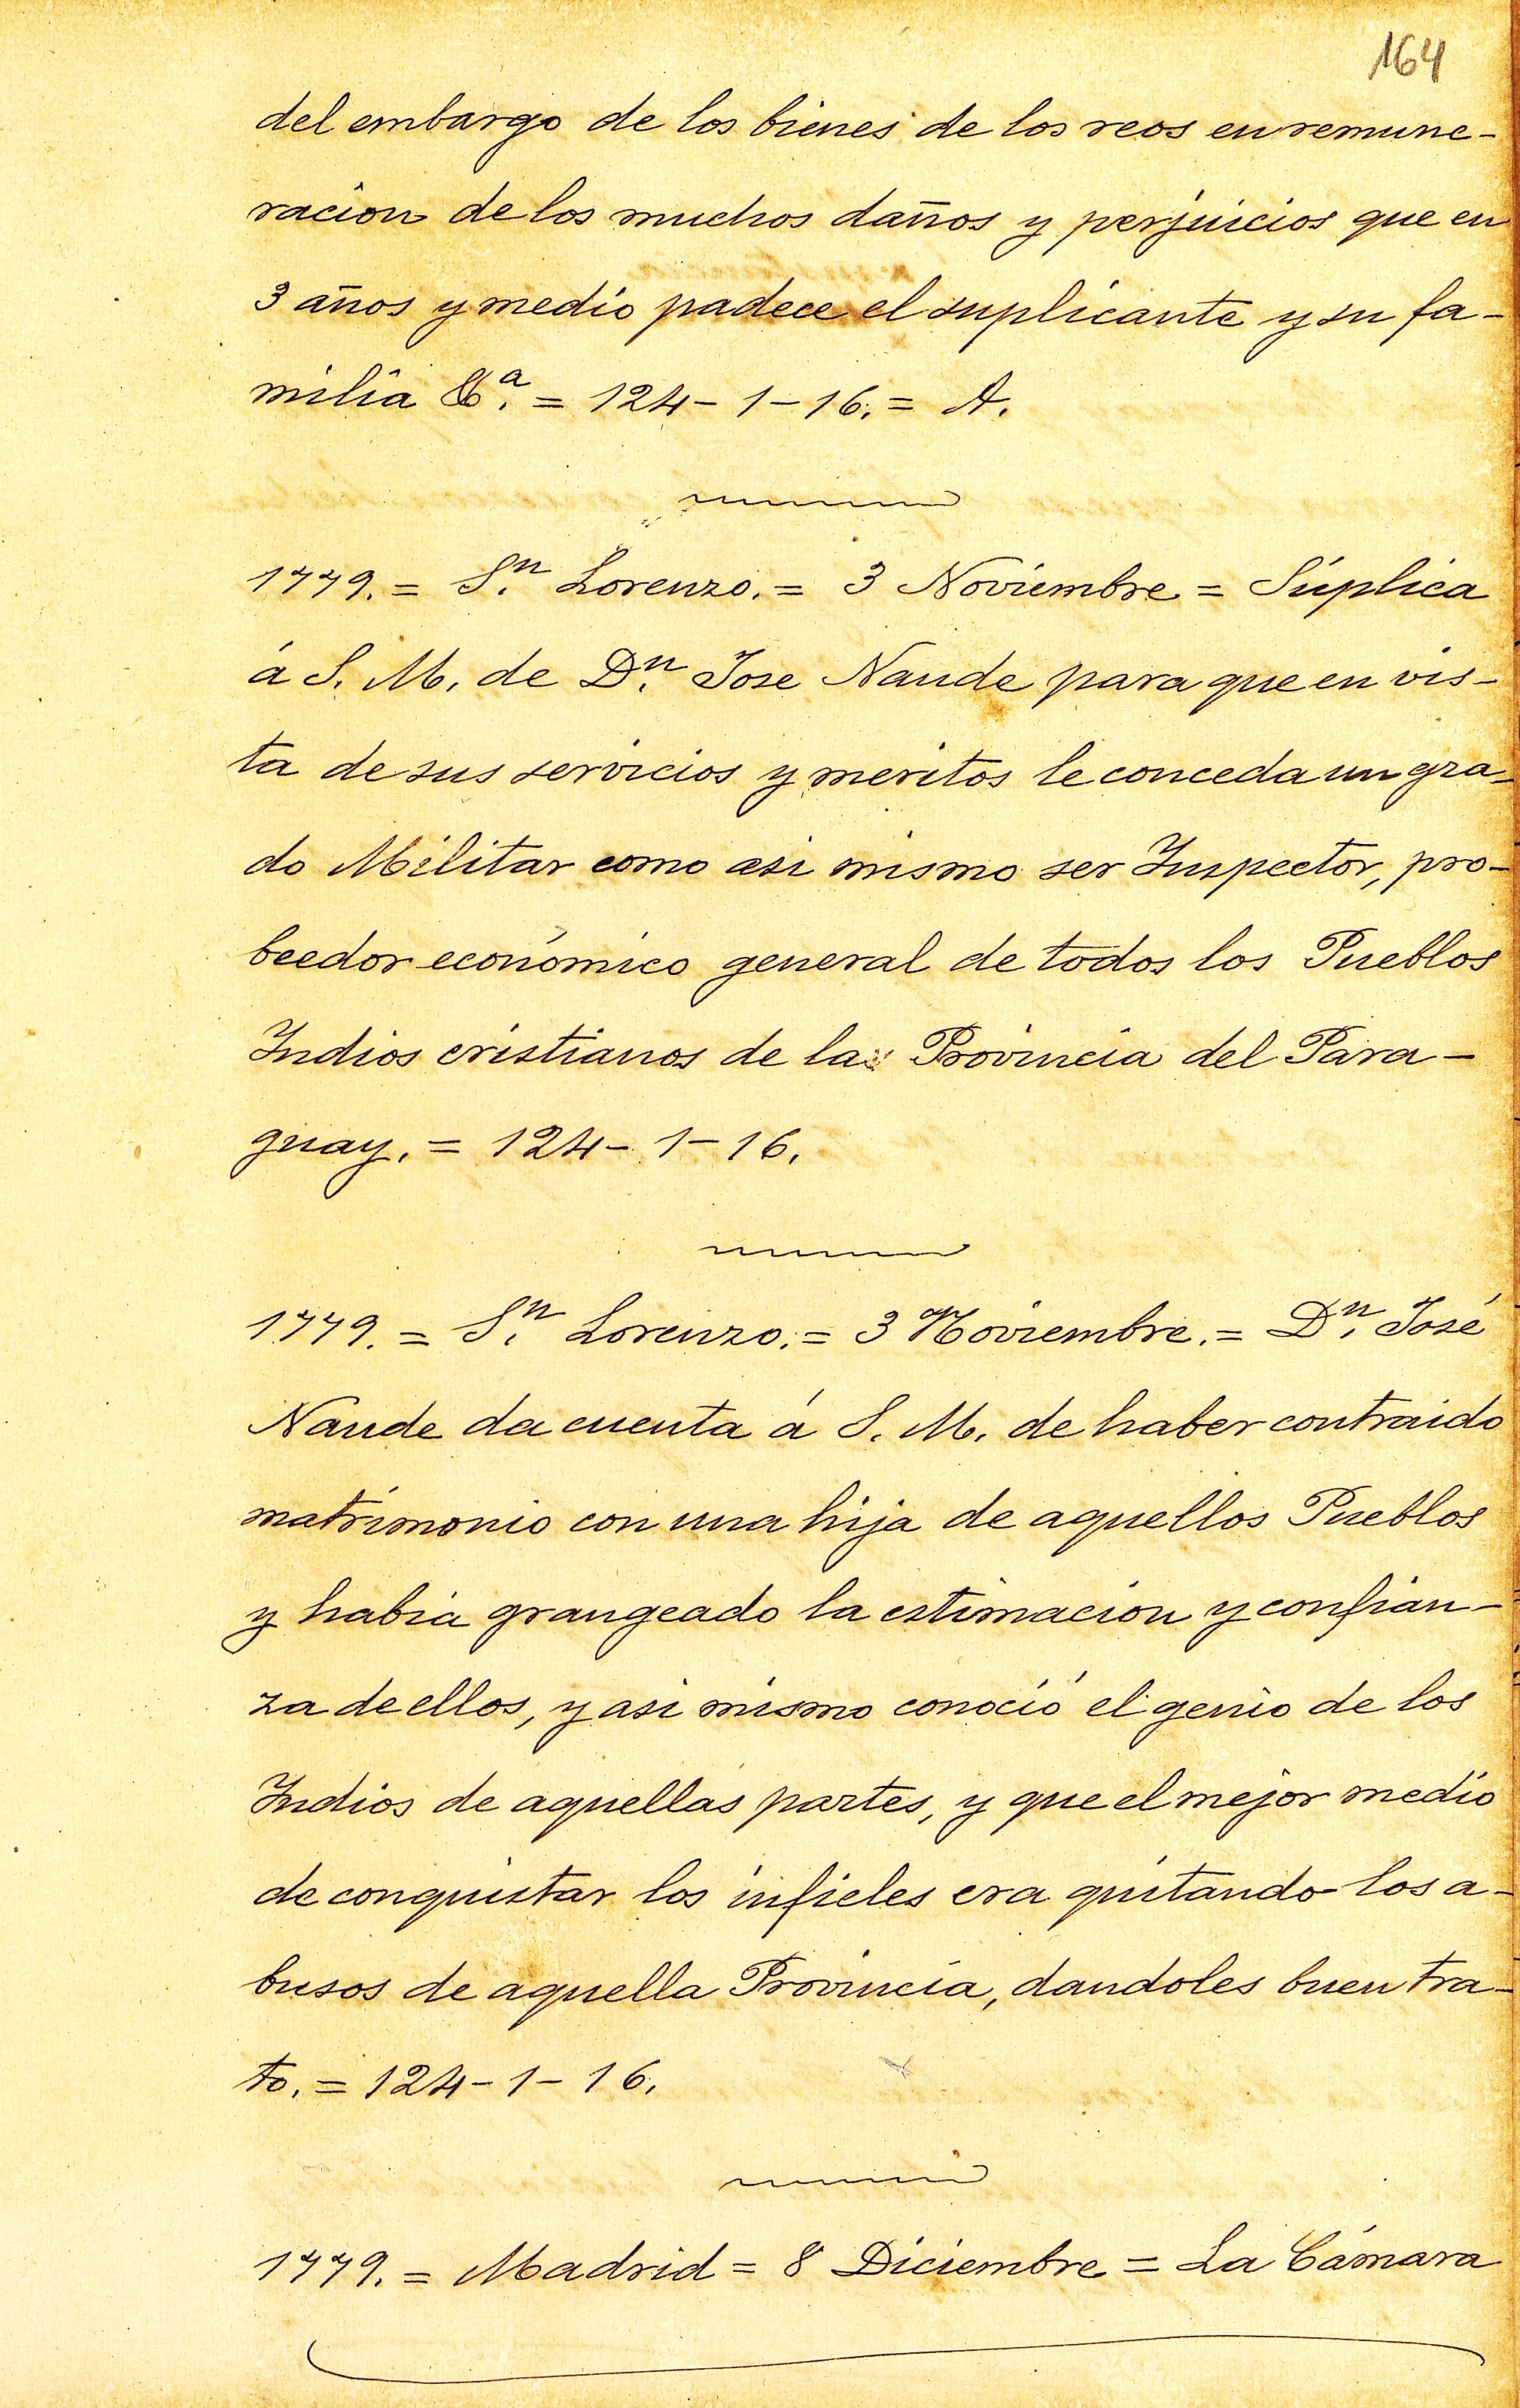 164
del embargo de los bienes de los reos en remune-
racion de los muchos daños y perjuicios que en
3 años y medio padece el suplicante y su fa-
milia &ª. = 124-1-16. = A.
1779. = S.n Lorenzo. = 3 Noviembre = Súplica
á S. M. de D.n Jose Naude para que en vis-
ta de sus servicios y meritos le conceda un gra-
do Militar como asi mismo ser Inspector, pro-
beedor económico general de todos los Pueblos
Indios cristianos de la Provincia del Para-
guay. = 124-1-16.
1779. = S.n Lorenzo. = 3 Noviembre. = D.n José
Naude da cuenta á S. M. de haber contraido
matrimonio con una hija de aquellos Pueblos
y habia grangeado la estimacion y confian-
za de ellos, y asi mismo conoció el genio de los
Indios de aquellas partes, y que el mejor medio
de conquistar los infieles era quitando los a-
busos de aquella Provincia, dandoles buen tra-
to. = 124-1-16.
1779. = Madrid = 8 Diciembre = La Cámara